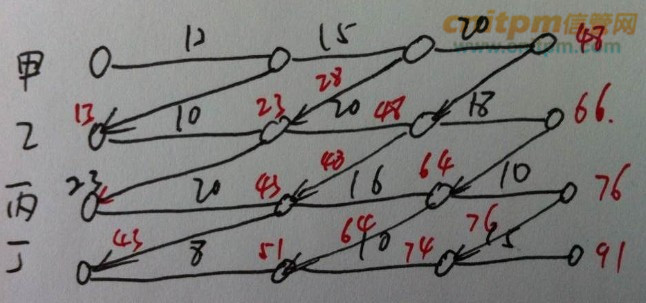 cnitpm信管网
www.cnitpm.com
13 15 20 48
甲
28
13 10 23 20 48 18 66.
乙
43 48 64
丙 23 20 16 10 76
43 64 76
丁 8 51 10 74 15 91